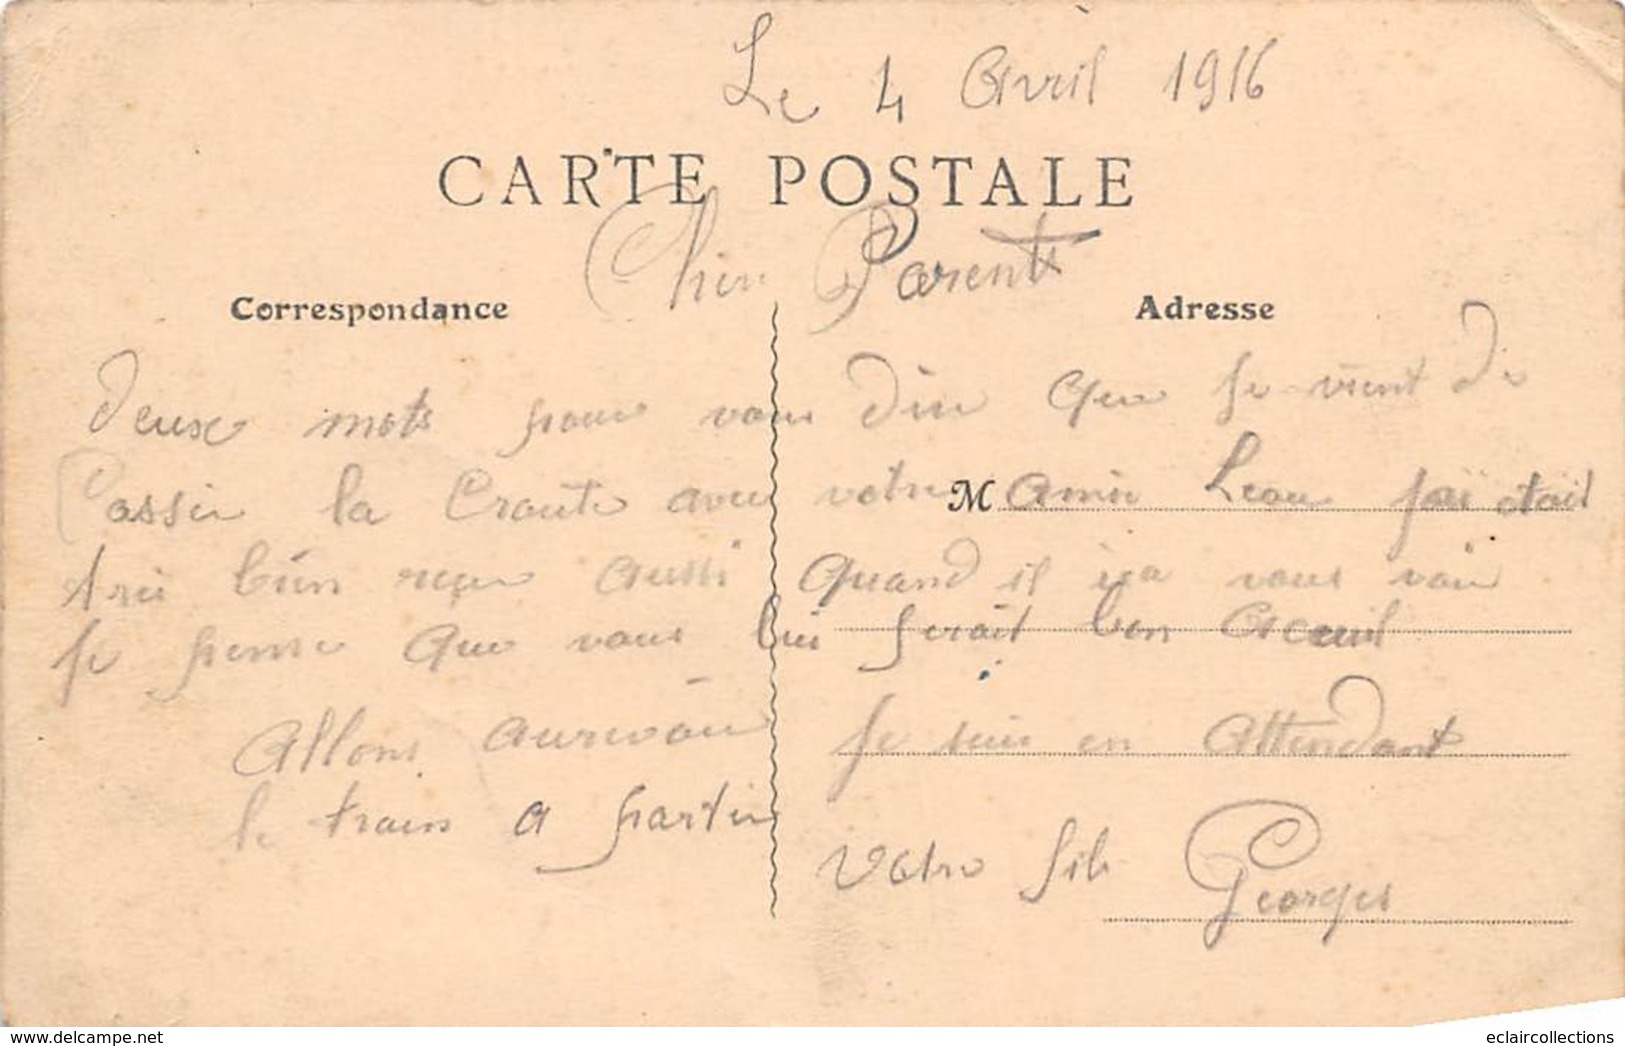 Le 4 Avril 1916
CARTE POSTALE
Cher Parents
Correspondance
Adresse
deux mots pour vous dire que je vient de
Casser la Croute avec votre M amie Leau jai était
très bien reçu aussi quand il ira vous voir
je pense que vous lui ferait bon Acceuil
Allons aurevoir
je suis en Attendant
le train a partir
Votre fils Georges
eclaircollections
www.delcampe.net